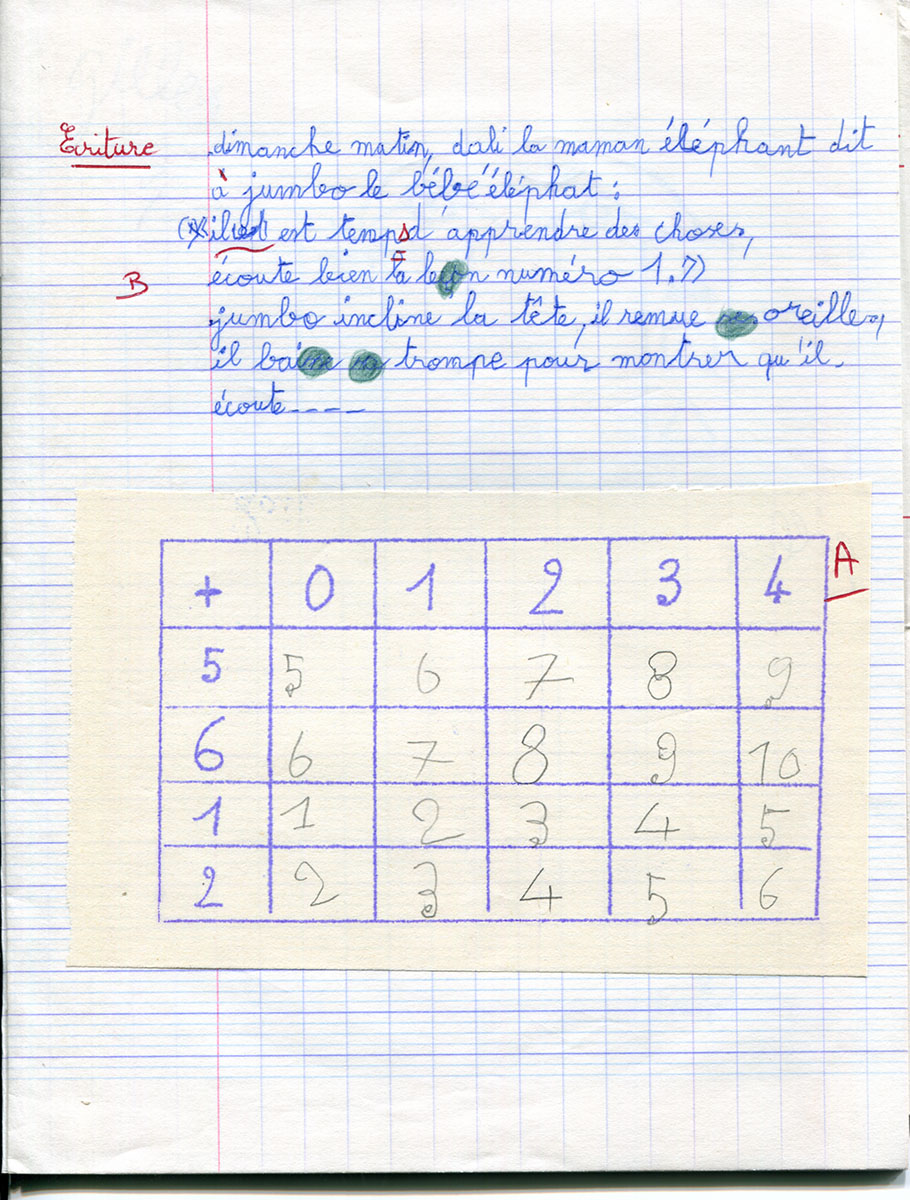 Ecriture dimanche matin, dali la maman éléphant dit
à jumbo le bébé éléphat :
est temps d'apprendre des choses,
B écoute bien ta leçon numéro 1.»
jumbo incline la tête, il remue oreilles,
il trompe pour montrer qu'il
écoute----
A
+ 0 1 2 3 4
5 5 6 7 8 9
6 6 7 8 9 10
1 1 2 3 4 5
2 2 3 4 5 6